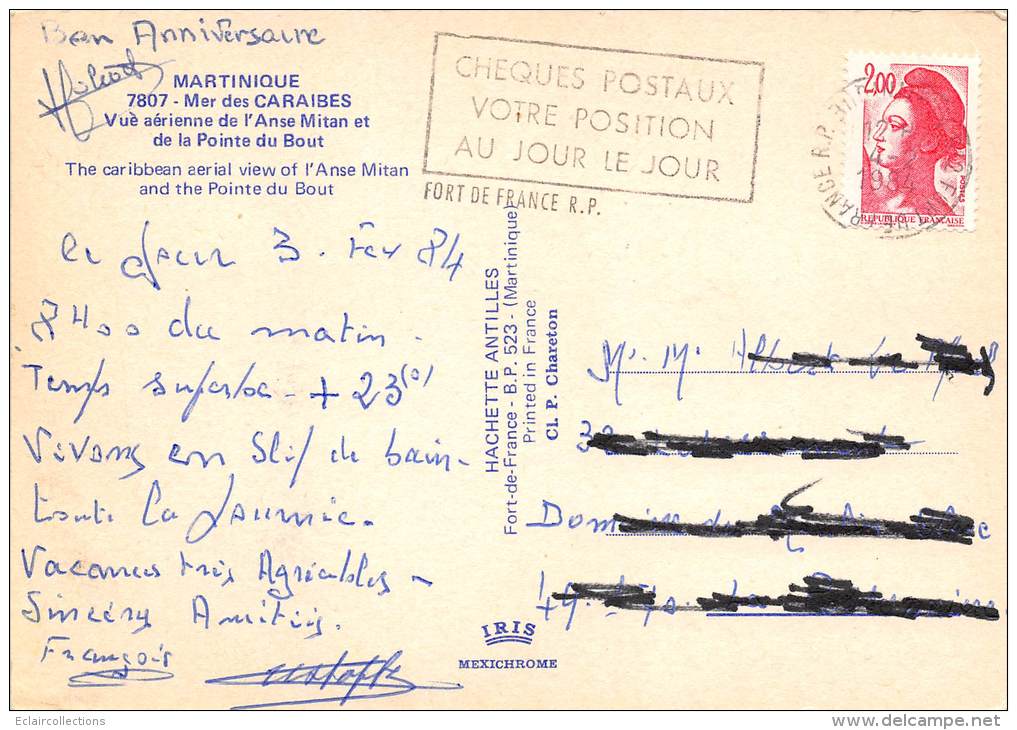 Bon Anniversaire
MARTINIQUE
7807 - Mer des CARAIBES
Vue aérienne de l'Anse Mitan et
de la Pointe du Bout
The caribbean aerial view of l'Anse Mitan
and the Pointe du Bout
CHEQUES POSTAUX
VOTRE POSITION
AU JOUR LE JOUR
FORT DE FRANCE R.P.
2,00
POSTES
REPUBLIQUE FRANÇAISE
12
4-2
1984
FRANCE R.P.
ce jour 3. Fev 84
8H00 du matin.
Temps superbe - + 23(0)
Vivons en Slip de bain -
toute la journée.
Vacances très Agréables -
Sincères Amitiés.
François
HACHETTE ANTILLES
Fort-de-France - B.P. 523 - (Martinique)
Printed in France
Cl. P. Chareton
M. Mr
49
IRIS
MEXICHROME
Eclaircollections
www.delcampe.net